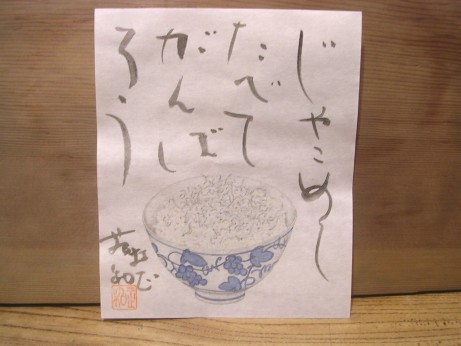 じゃこめし
たべて
がんば
ろう